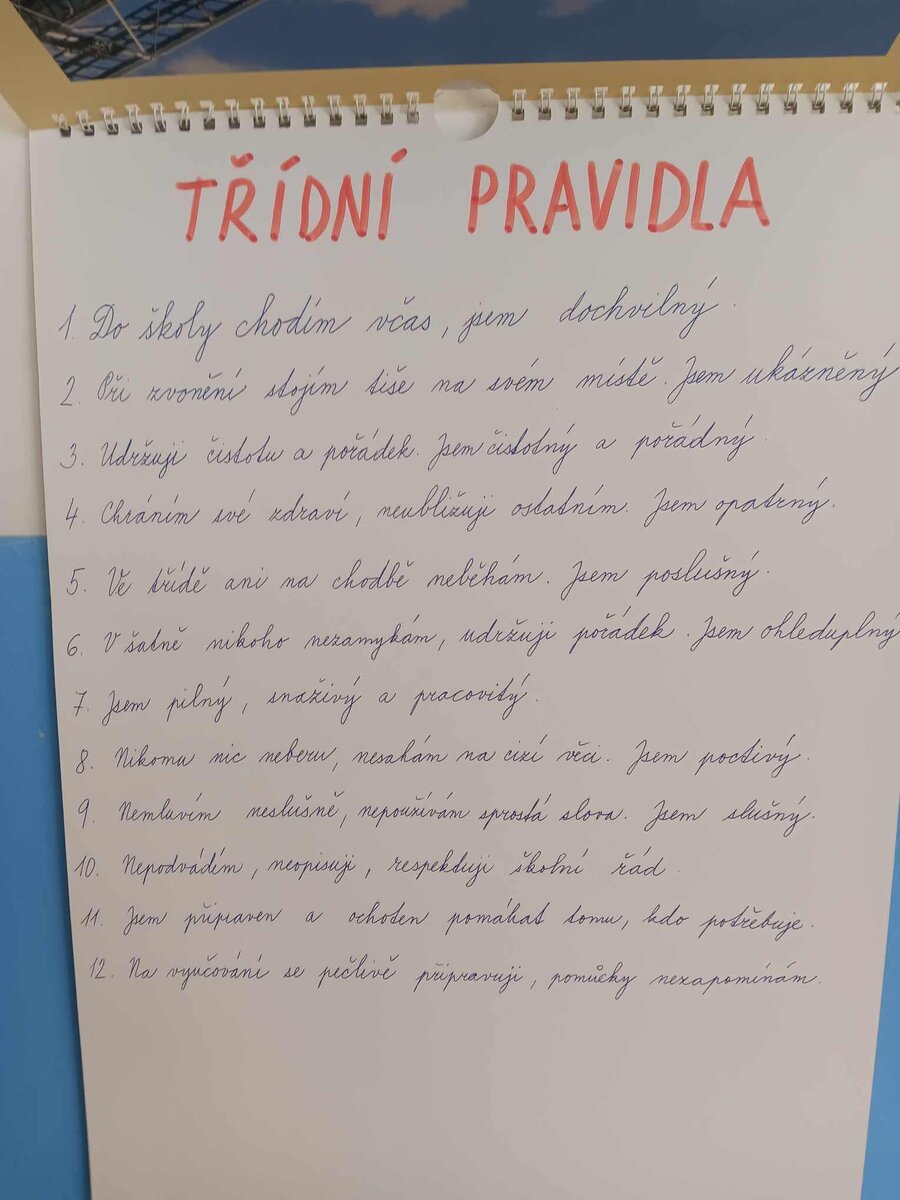 TŘÍDNÍ PRAVIDLA
1. Do školy chodím včas, jsem dochvilný.
2. Při zvonění stojím tiše na svém místě. Jsem ukázněný
3. Udržuji čistotu a pořádek. Jsem čistotný a pořádný.
4. Chráním své zdraví, neubližuji ostatním. Jsem opatrný.
5. Ve třídě ani na chodbě neběhám. Jsem poslušný.
6. V šatně nikoho nezamykám, udržuji pořádek. Jsem ohleduplný
7. Jsem pilný, snaživý a pracovitý.
8. Nikomu nic neberu, nesahám na cizí věci. Jsem poctivý.
9. Nemluvím neslušně, nepoužívám sprostá slova. Jsem slušný.
10. Nepodvádím, neopisuji, respektuji školní řád.
11. Jsem připraven a ochoten pomáhat tomu, kdo potřebuje.
12. Na vyučování se pečlivě připravuji, pomůcky nezapomínám.